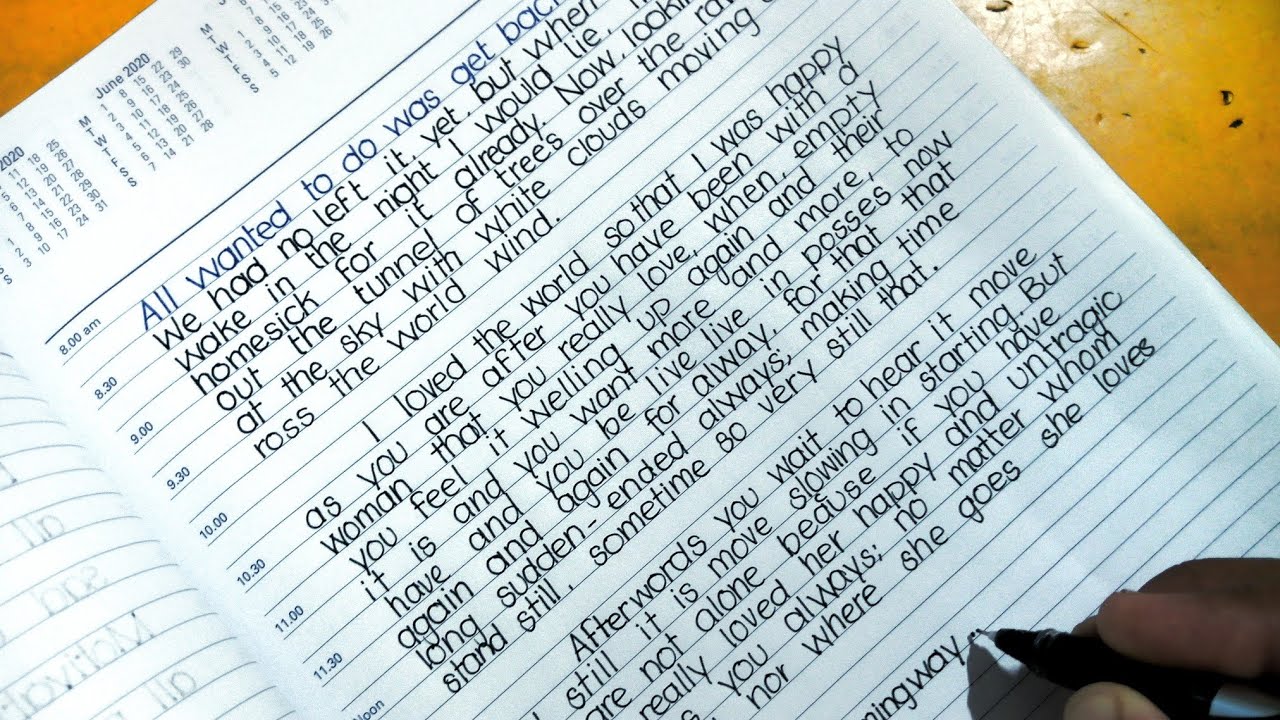 June 2020
M 1 8 15 22 29
T 2 9 16 23 30
W 3 10 17 24
T 4 11 18 25
F 5 12 19 26
S 6 13 20 27
S 7 14 21 28
8.00 am
8.30
9.00
9.30
10.00
10.30
11.00
11.30
Noon
All wanted to do was get back
We had no left it, yet, but when
wake in the night I would lie,
homesick for it already. Now, looking
out the tunnel of trees over the
at the sky with white clouds moving
ross the world wind.
I loved the world so that I was happy
as you are after you have been with a
woman that you really love, when, empty
you feel it welling up again and their
it is and you want more and more, to
have and you be live in posses now
again and again for away, for that
long sudden-ended always; making time
stand still, sometime so very still that.
Afterwords you wait to hear it move
still it is move slowing in starting, But
are not alone beause if you have
really loved her happy and untragic
you always; no matter whom
nor where she goes she loves
mingway..